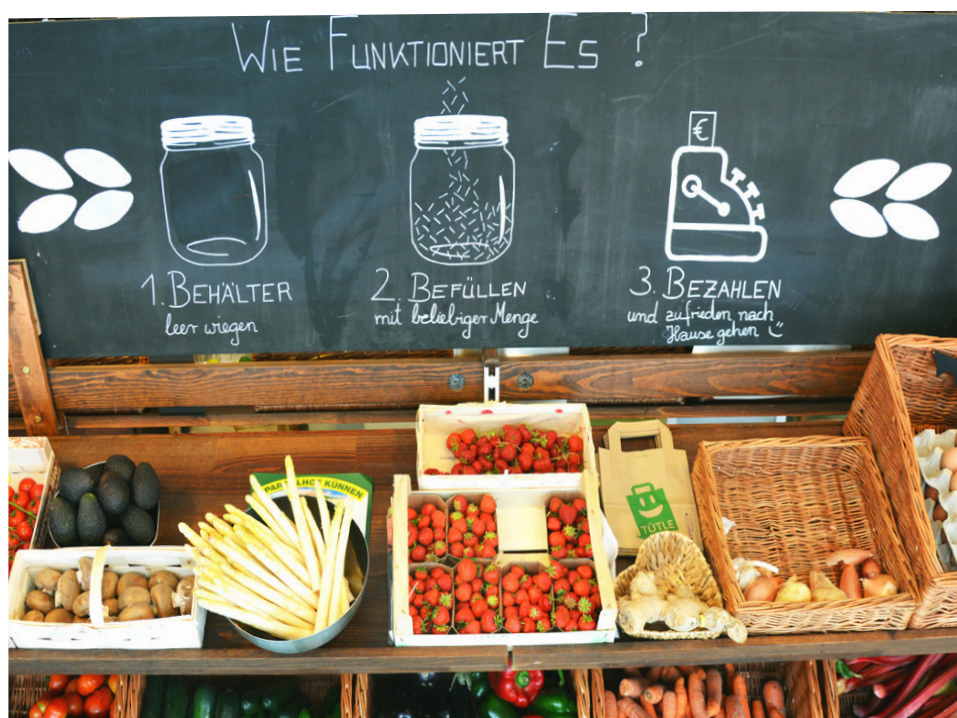 WIE FUNKTIONIERT ES ?
€
1. BEHÄLTER
leer wiegen
2. BEFÜLLEN
mit beliebiger Menge
3. BEZAHLEN
und zufrieden nach
Hause gehen
KÜNNEN
TÜTLE